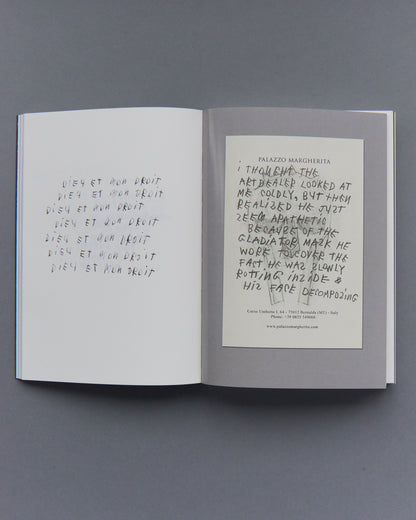 DIEU ET MON DROIT
DIEU ET MON DROIT
DIEU ET MON DROIT
DIEU ET MON DROIT
DIEU ET MON DROIT
DIEU ET MON DROIT
DIEU ET MON DROIT
PALAZZO MARGHERITA
I THOUGHT THE
ARTDEALER LOOKED AT
ME COLDLY, BUT THEN
REALIZED HE JUST
SEEM APATHETIC
BECAUSE OF THE
GLADIATOR MASK HE
WORE TO COVER THE
FACT HE WAS SLOWLY
ROTTING INSIDE &
HIS FACE DECOMPOSING
Corso Umberto I, 64 - 75012 Bernalda (MT) - Italy
Phone: +39 0835 549060
www.palazzomargherita.com